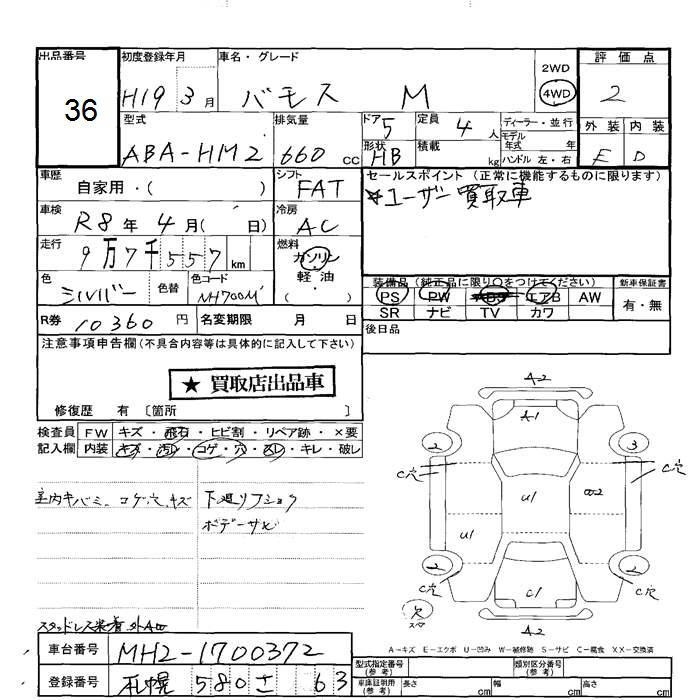 出品番号 初度登録年月 車名・グレード 2WD 評価点
36 H19 3月 バモス M 4WD 2
型式 排気量 ドア 定員 ディーラー・並行 外装 内装
ABA-HM2 660cc 5 4人 モデル年式 年 E D
形状 HB 積載 kg ハンドル 左・右
車歴 シフト セールスポイント (正常に機能するものに限ります)
自家用・( ) FAT ★ユーザー買取車
車検 冷房
R8年 4月( 日) AC
走行 燃料
9万7千557km ガソリン
軽油
・( )
色 色替 色コード 装備品 (純正品に限り○をつけてください) 新車保証書
シルバー NH700M PS PW エアB AW 有・無
R券 10360円 名変期限 月 日 SR ナビ TV カワ
注意事項申告欄(不具合内容等は具体的に記入して下さい) 後日品
★ 買取店出品車
修復歴 有 〔箇所 〕
検査員 FW キズ・飛石・ヒビ割・リペア跡・×要
記入欄 内装 キズ・汚れ・コゲ・穴・スレ・キレ・破レ
室内キバミ、コゲ穴、キズ 下廻りフショク
ボデーサビ
A2
A-1
2 3
C穴 C穴
U1
U1
2 2
C穴 C穴
C1
欠
A2
A-キズ E-エクボ U-凹み W-補修跡 S-サビ C-腐食 XX-交換済
車台番号 MH2-1700372
登録番号 札幌 580 さ 63
型式指定番号(参考) 類別区分番号(参考)
車庫証明用(参考) 長さ cm 幅 cm 高さ cm